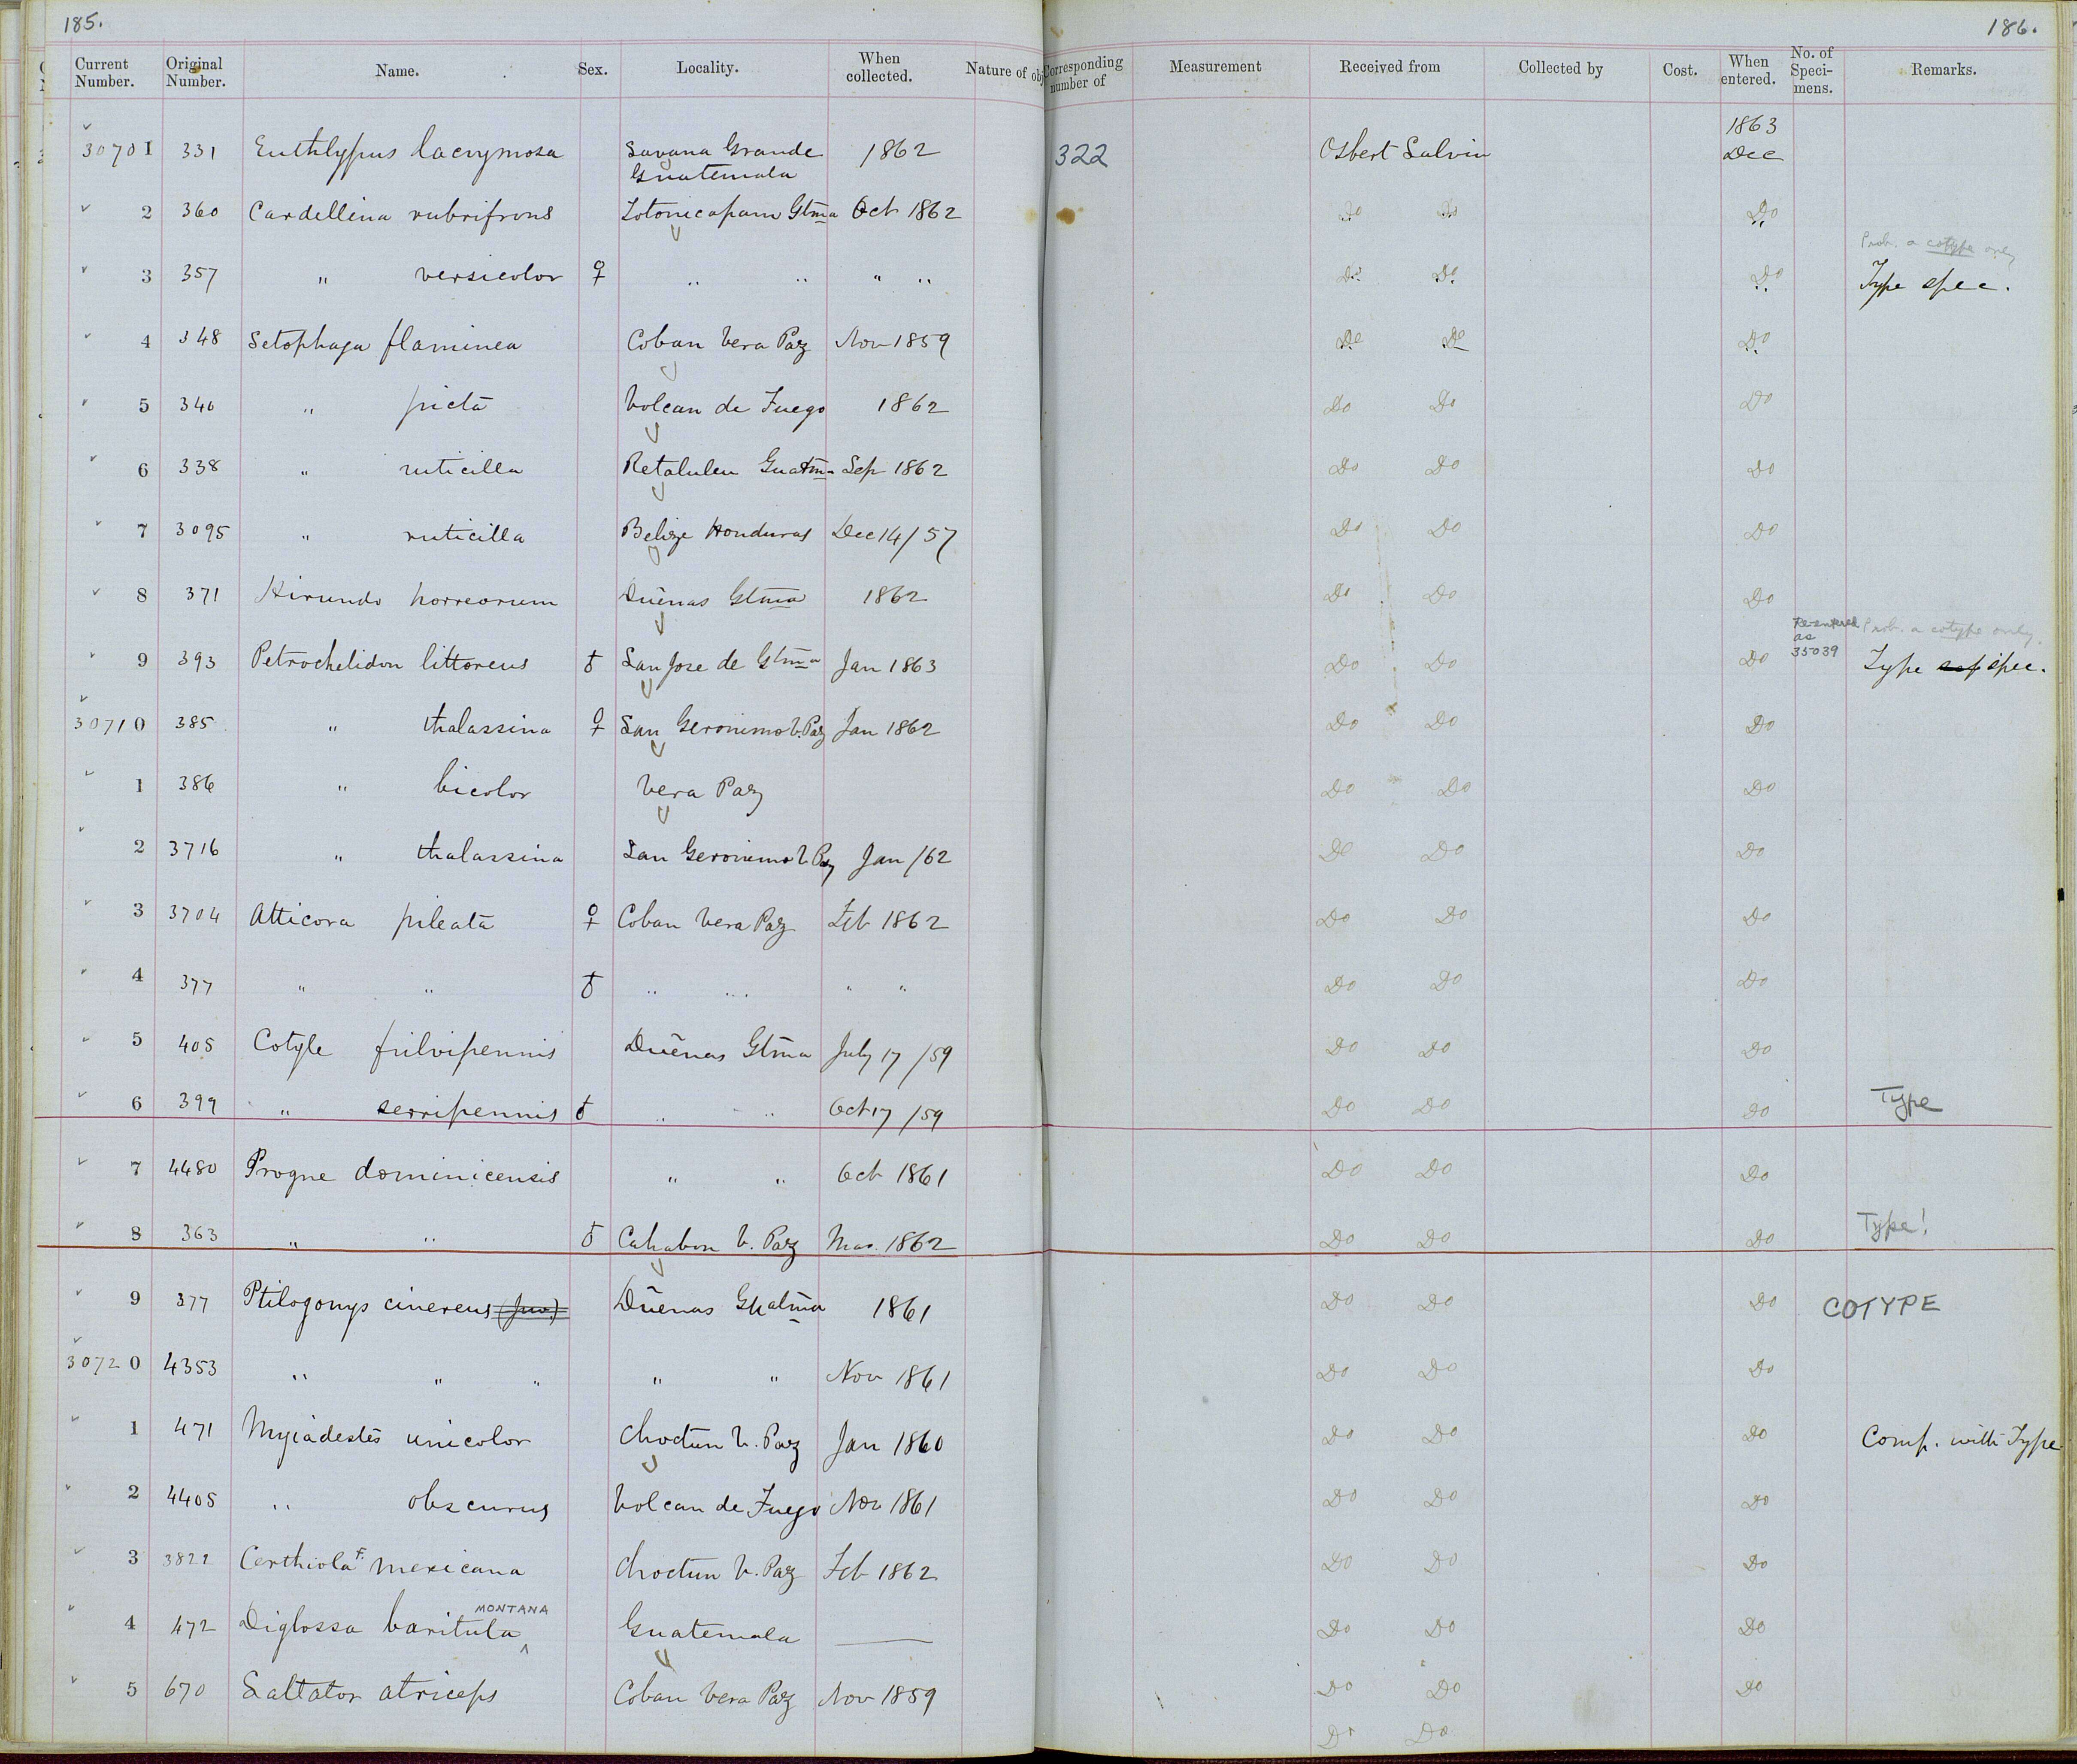 185.
186.
Current Number. Original Number. Name. Sex. Locality. When collected. Nature of obj Corresponding number of Measurement Received from Collected by Cost. When entered. No. of Speci-mens. Remarks.
30701 331 Euthlypus lacrymosa Savana Grande Guatemala 1862 322 Osbert Salvin 1863 Dec
2 360 Cardellina rubrifrons Totonicapam Gtma Oct 1862 Do Do Do
Prob. a cotype only
3 357 " versicolor ♀ " " " " Do Do Do Type spec.
4 348 Setophaga flaminea Coban Vera Paz Nov 1859 Do Do Do
5 346 " picta Volcan de Fuego 1862 Do Do Do
6 338 " ruticilla Retaluleu Guatma Sep 1862 Do Do Do
7 3095 " ruticilla Belize Honduras Dec 14/57 Do Do Do
8 371 Hirundo horreorum Duēnas Gtma 1862 Do Do Do
Re-entered as 35039 Prob. a cotype only.
9 393 Petrochelidon littoreus ♂ San Jose de Gtma Jan 1863 Do Do Do Type spec.
30710 385 " thalassina ♀ San Geronimo V. Paz Jan 1862 Do Do Do
1 386 " bicolor Vera Paz Do Do Do
2 3716 " thalassina San Geronimo V Paz Jan /62 Do Do Do
3 3704 Atticora pileata ♀ Coban Vera Paz Feb 1862 Do Do Do
4 377 " " ♂ " " " " Do Do Do
5 405 Cotyle fulvipennis Duēnas Gtma July 17 /59 Do Do Do
6 399 " serripennis ♂ " " Oct 17 /59 Do Do Do Type
7 4480 Progne dominicensis " " Oct 1861 Do Do Do
8 363 " " ♂ Cahabon V. Paz Mar. 1862 Do Do Do Type!
9 377 Ptilogonys cinereus (Juv) Duēnas Guatma 1861 Do Do Do COTYPE
30720 4353 " " " " " Nov 1861 Do Do Do
1 471 Myiadestes unicolor Choctun V. Paz Jan 1860 Do Do Do Comp. with Type
2 4405 " obscurus Volcan de Fuego Nov 1861 Do Do Do
3 3822 Certhiola F. mexicana Choctun V. Paz Feb 1862 Do Do Do
MONTANA
4 472 Diglossa baritula ^ Guatemala — Do Do Do
5 670 Saltator atriceps Coban Vera Paz Nov 1859 Do Do Do
Do Do